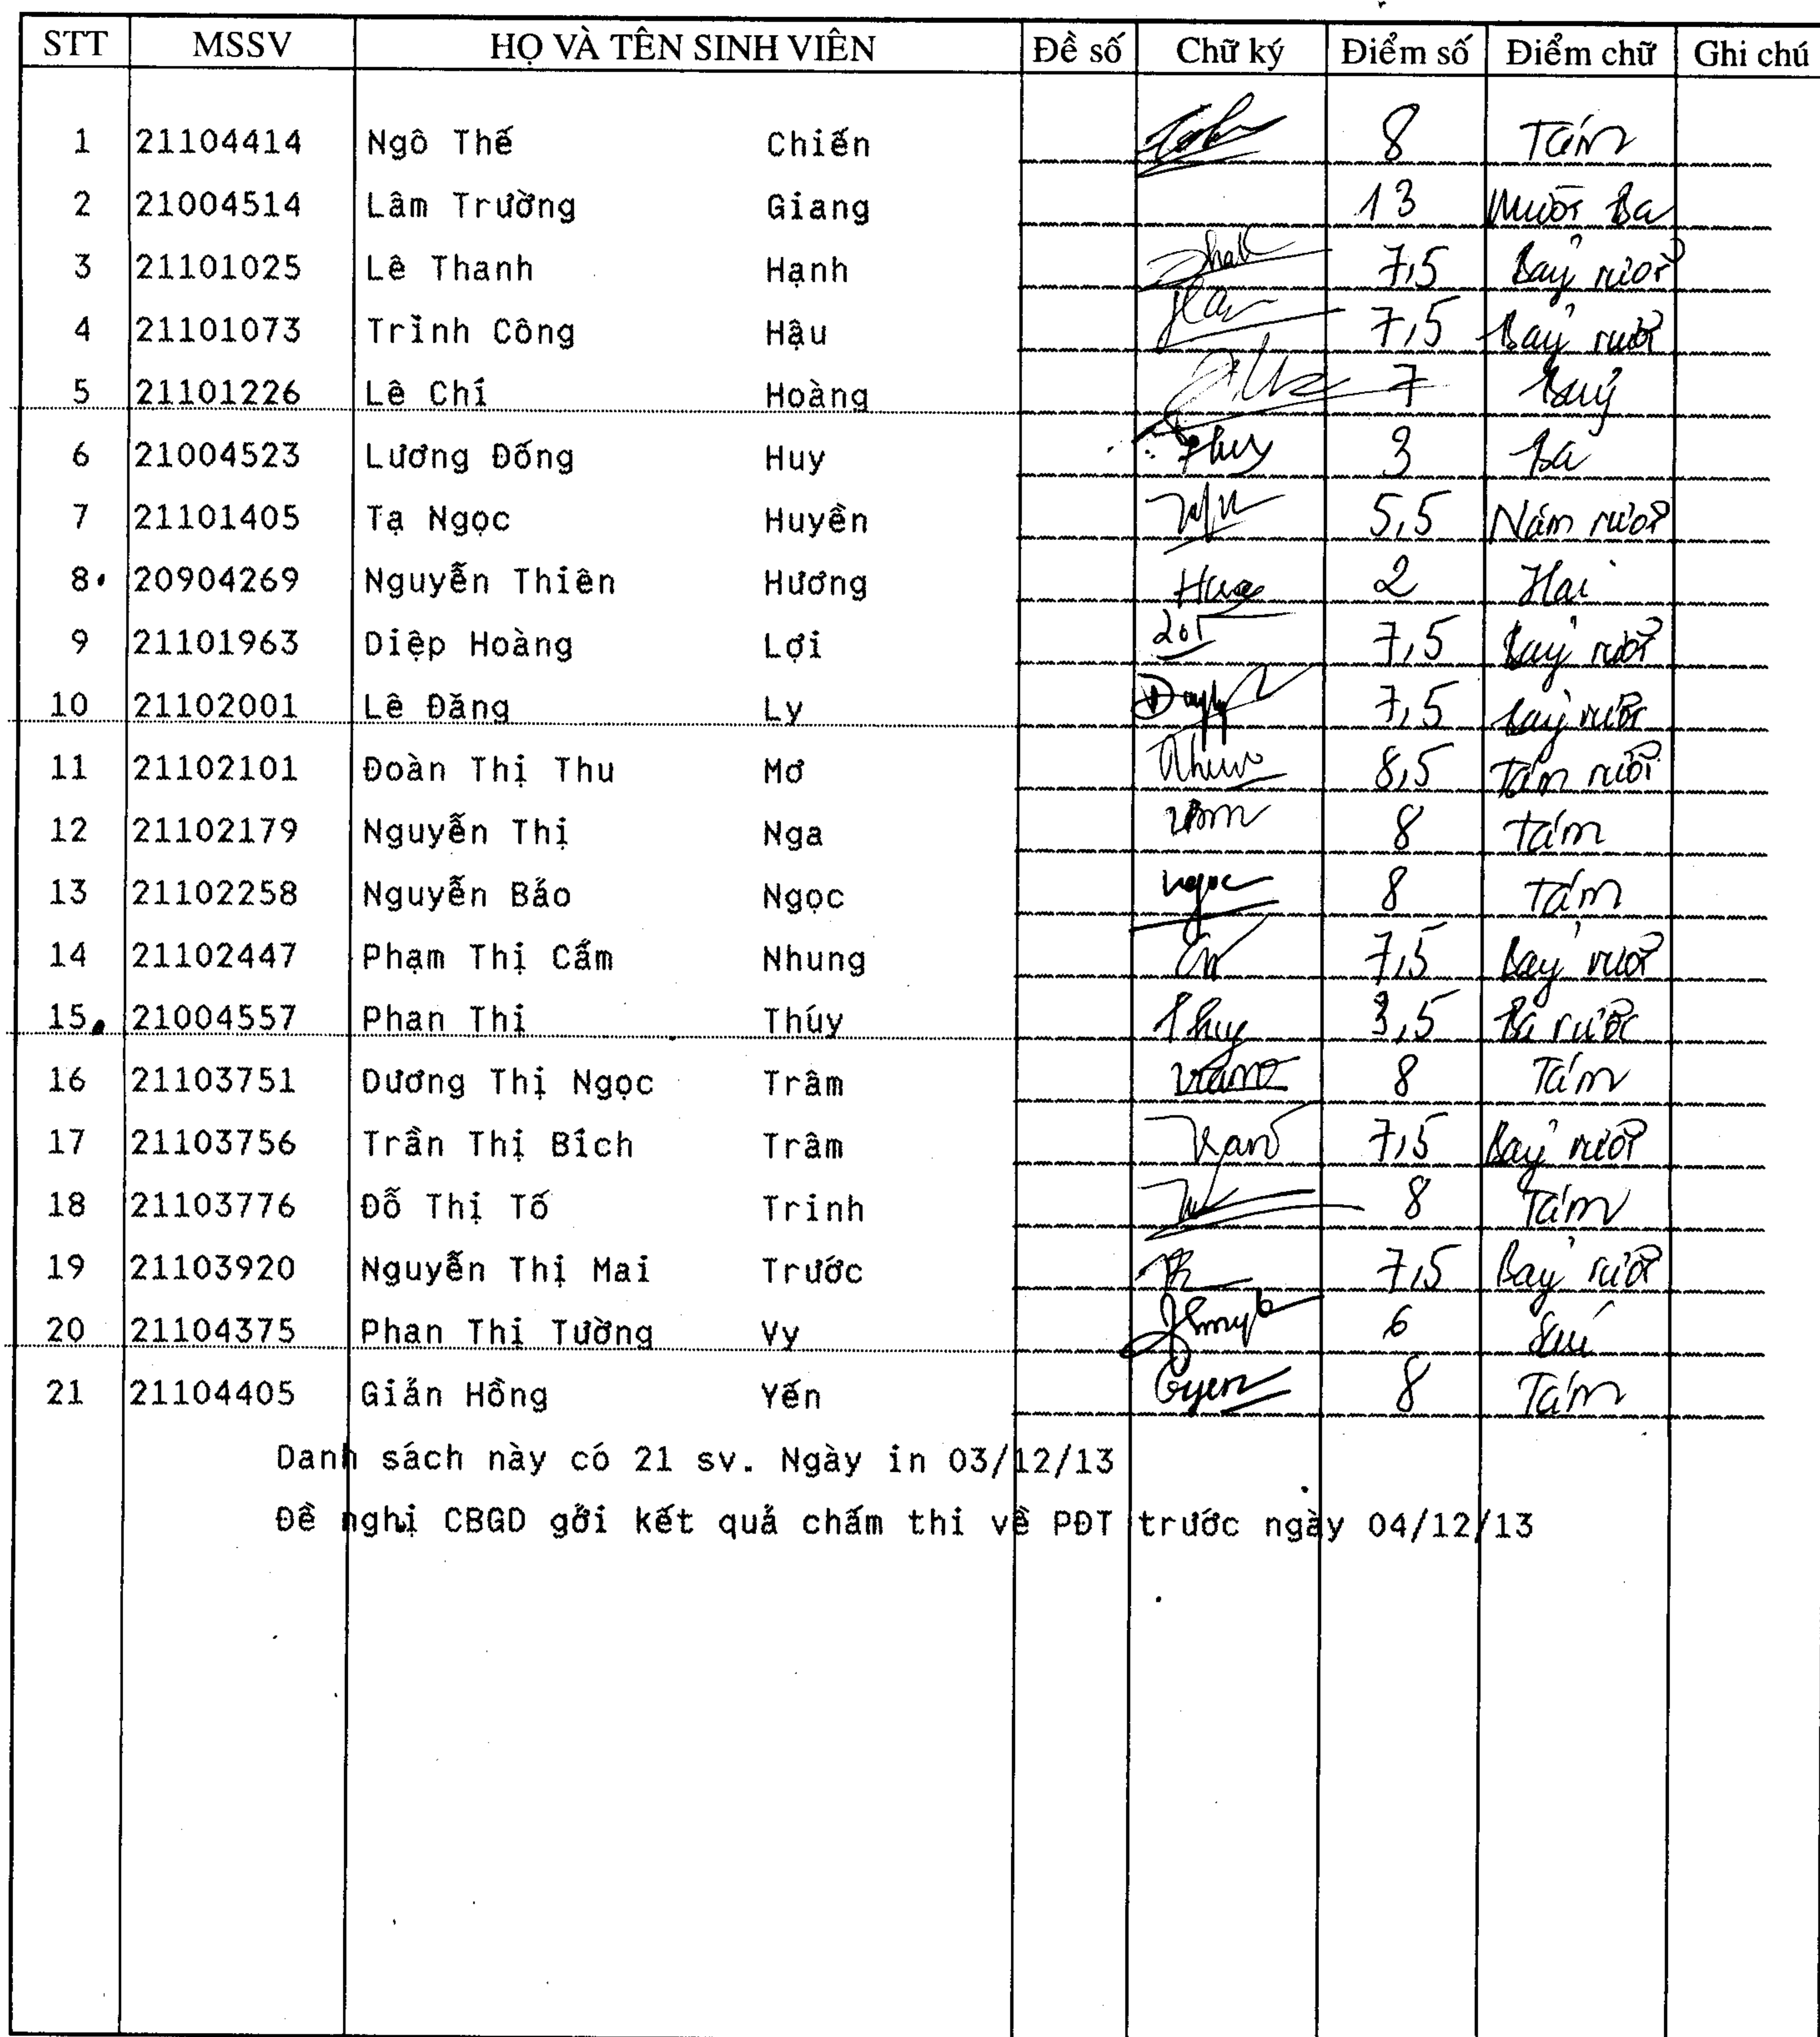 STT MSSV HỌ VÀ TÊN SINH VIÊN Đề số Chữ ký Điểm số Điểm chữ Ghi chú
1 21104414 Ngô Thế Chiến 8 Tám
2 21004514 Lâm Trường Giang 13 Mười Ba
3 21101025 Lê Thanh Hạnh 7,5 Bảy rưỡi
4 21101073 Trịnh Công Hậu 7,5 Bảy rưỡi
5 21101226 Lê Chí Hoàng 7 Bảy
6 21004523 Lương Đống Huy 3 Ba
7 21101405 Tạ Ngọc Huyền 5,5 Năm rưỡi
8 20904269 Nguyễn Thiên Hương 2 Hai
9 21101963 Diệp Hoàng Lợi 7,5 Bảy rưỡi
10 21102001 Lê Đăng Ly 7,5 Bảy rưỡi
11 21102101 Đoàn Thị Thu Mơ 8,5 Tám rưỡi
12 21102179 Nguyễn Thị Nga 8 Tám
13 21102258 Nguyễn Bảo Ngọc Ngọc 8 Tám
14 21102447 Phạm Thị Cẩm Nhung 7,5 Bảy rưỡi
15 21004557 Phan Thị Thúy Thuy 3,5 Ba rưỡi
16 21103751 Dương Thị Ngọc Trâm 8 Tám
17 21103756 Trần Thị Bích Trâm 7,5 Bảy rưỡi
18 21103776 Đỗ Thị Tố Trinh 8 Tám
19 21103920 Nguyễn Thị Mai Trước 7,5 Bảy rưỡi
20 21104375 Phan Thị Tường Vy 6 Sáu
21 21104405 Giản Hồng Yến 8 Tám
Danh sách này có 21 sv. Ngày in 03/12/13
Đề nghị CBGD gởi kết quả chấm thi về PĐT trước ngày 04/12/13